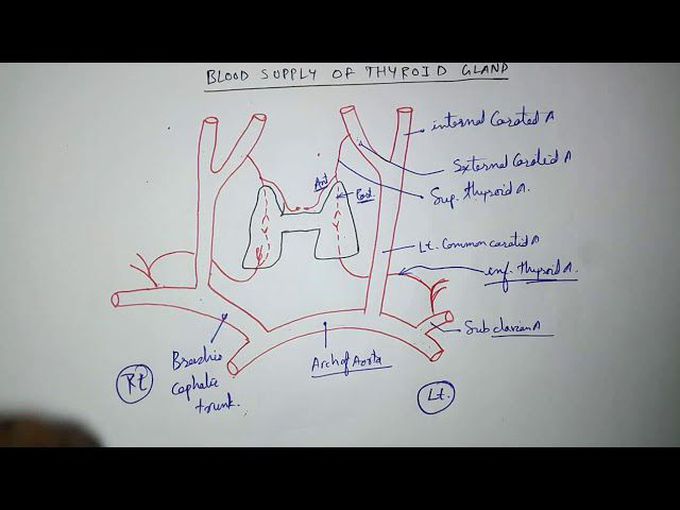 BLOOD SUPPLY OF THYROID GLAND
internal Carated A
External Carotid A
Sup. thyroid A.
Ant
Post.
Lt. Common carotid A
inf. thyroid A.
Subclavian A
Arch of Aorta
Brachio
cephalic
trunk.
Rt
Lt.